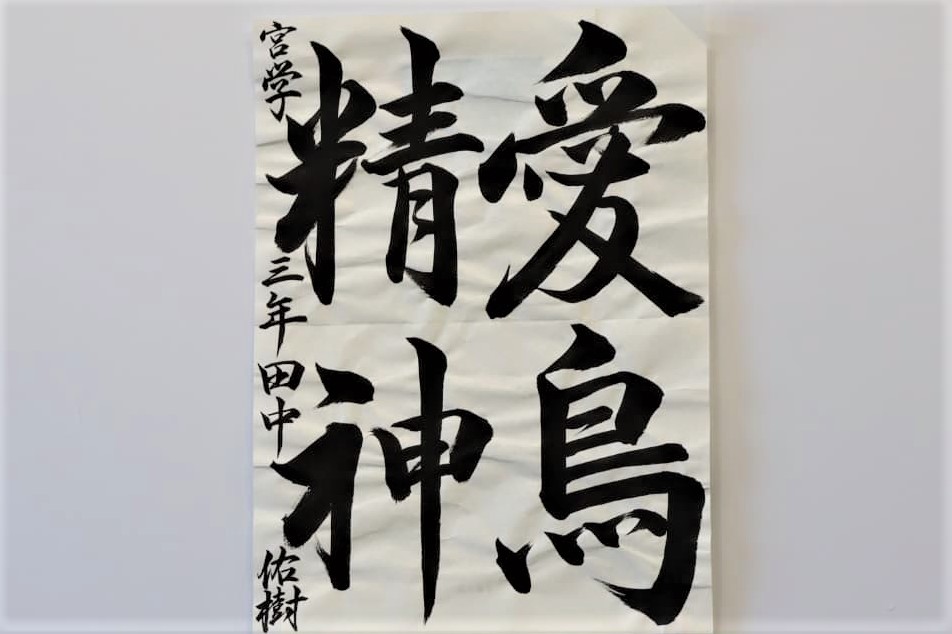 愛鳥
精神
宮学 三年 田中 佑樹